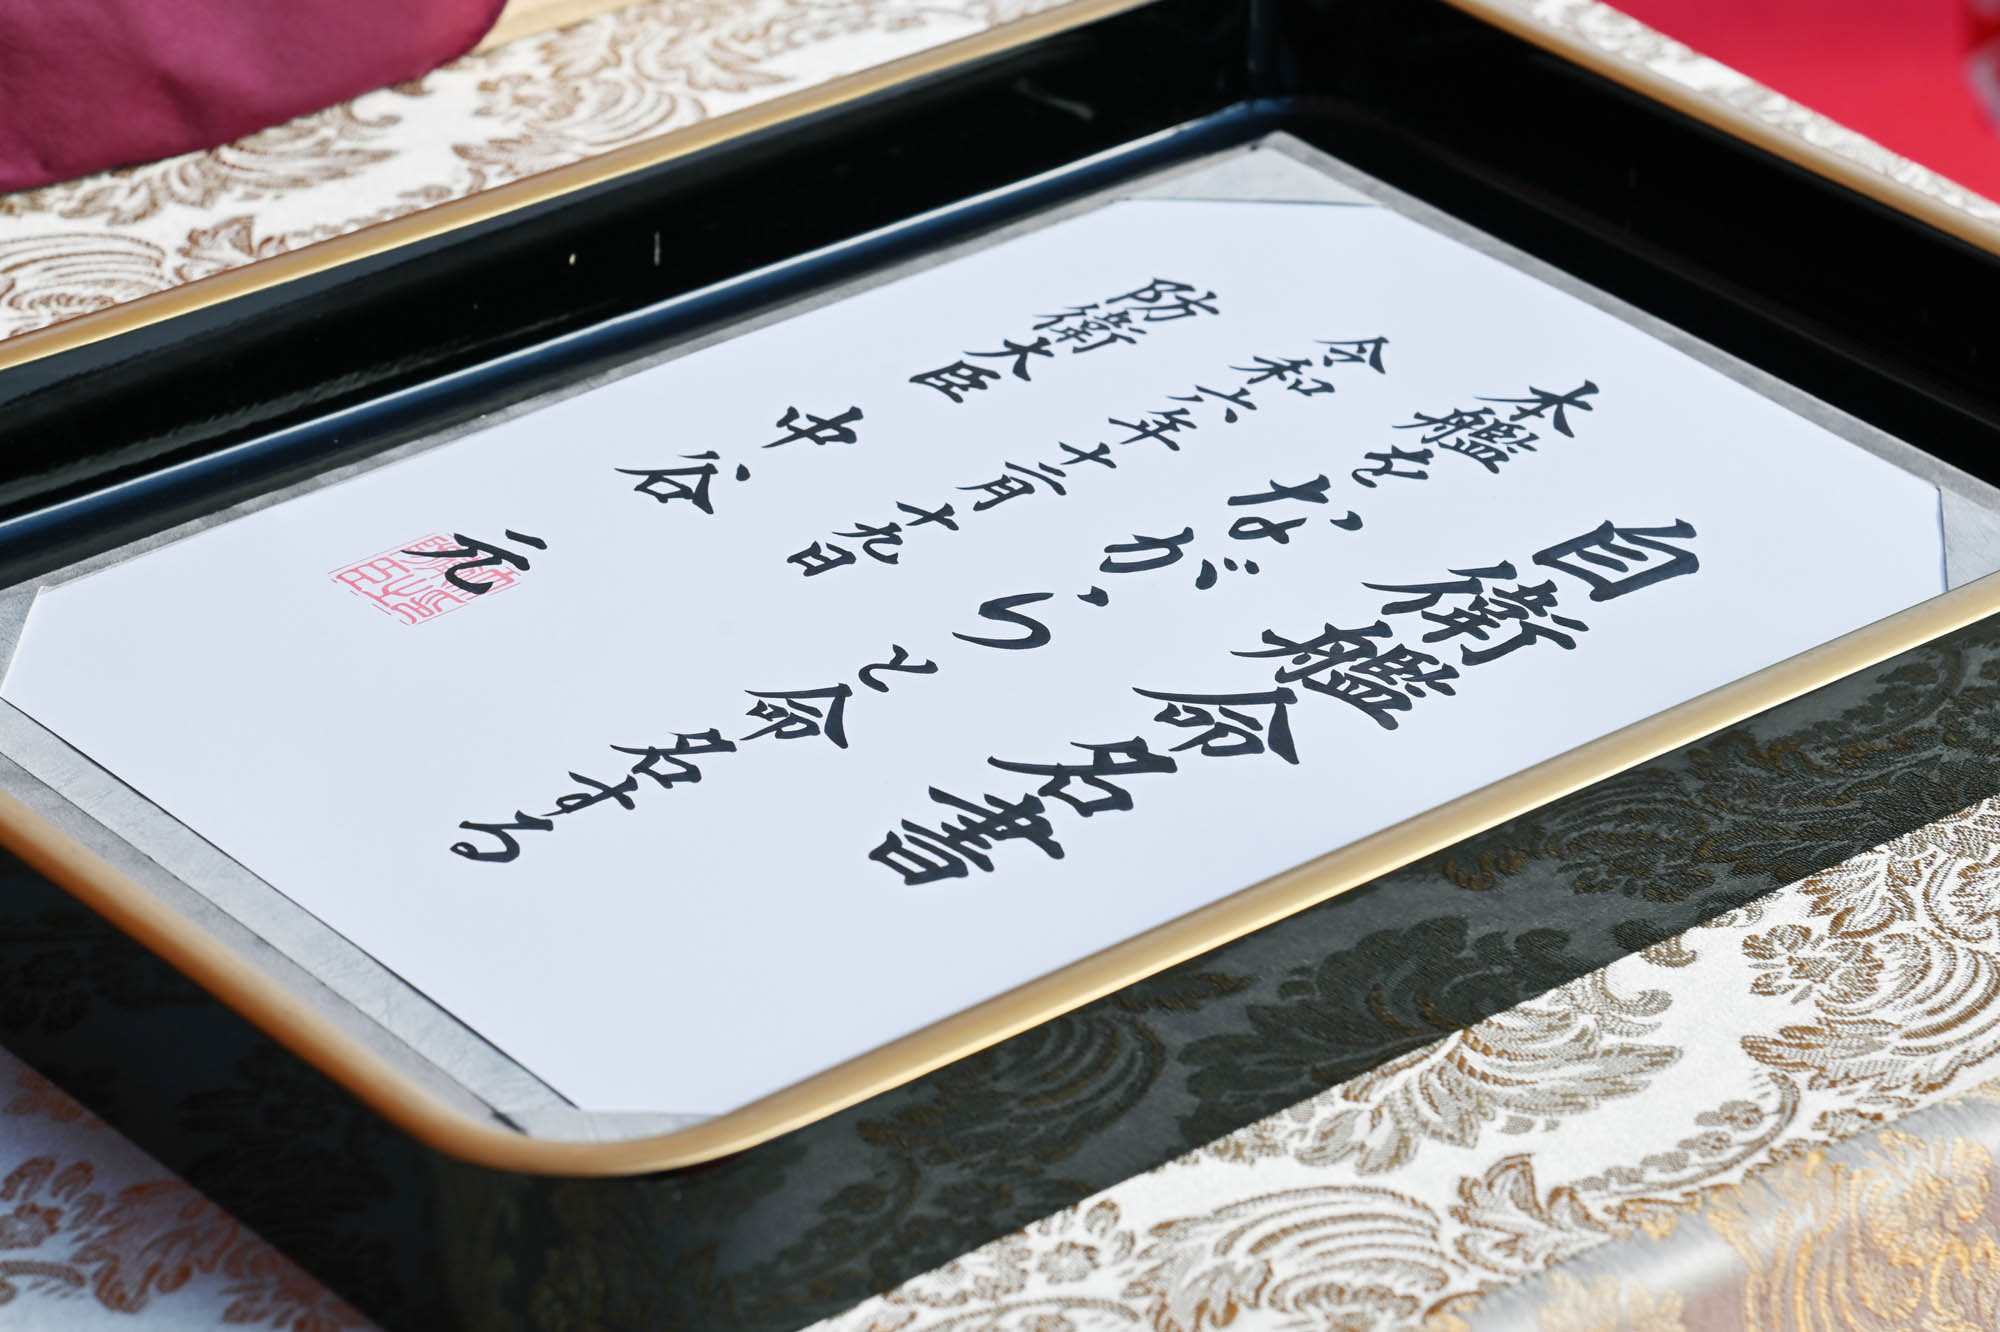 自衛艦命名書
本艦を
ながらと命名する
令和六年十二月十九日
防衛大臣
中谷元